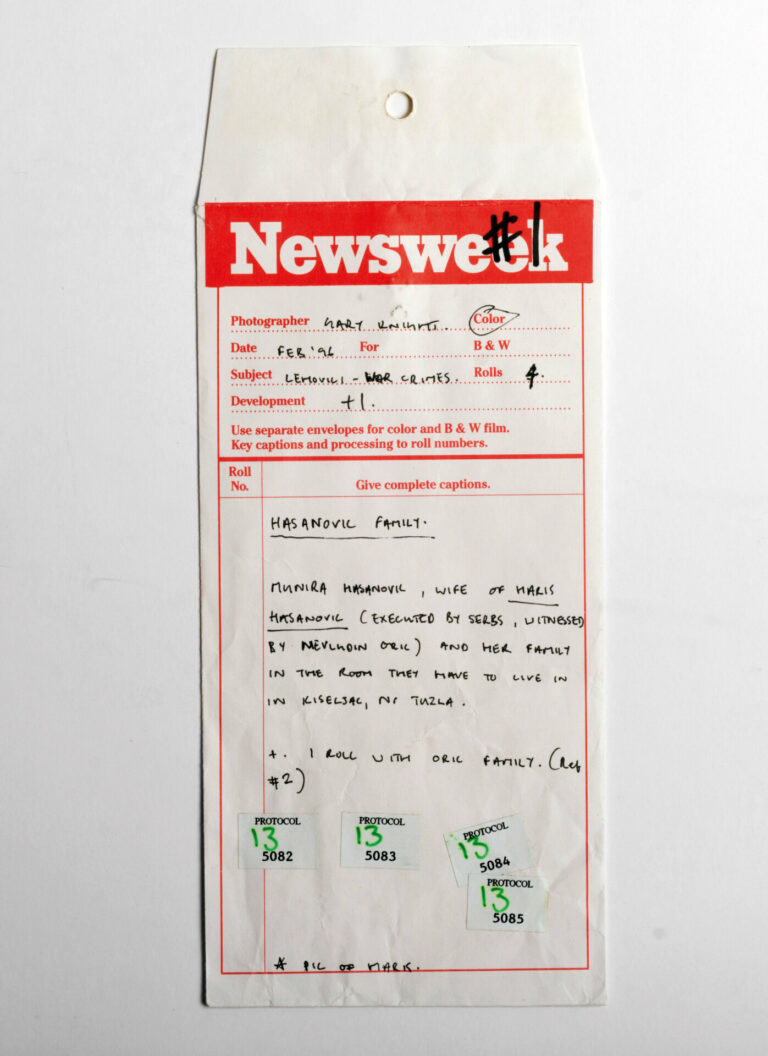 Newsweek #1
Photographer GARY KNIGHT. Color
Date FEB '96 For B & W
Subject LEHOVICI - WAR CRIMES. Rolls 4.
Development +1.
Use separate envelopes for color and B & W film.
Key captions and processing to roll numbers.
Roll No.
Give complete captions.
HASANOVIC FAMILY.
MUNIRA HASANOVIC, WIFE OF HARIS
HASANOVIC (EXECUTED BY SERBS, WITNESSED
BY MEVLUDIN ORIC) AND HER FAMILY
IN THE ROOM THEY HAVE TO LIVE IN
IN KISELJAC, Nr TUZLA.
+. 1 ROLL WITH ORIC FAMILY. (Ref
#2)
PROTOCOL
13
5082
PROTOCOL
13
5083
PROTOCOL
13
5084
PROTOCOL
13
5085
* PIC OF MARK.